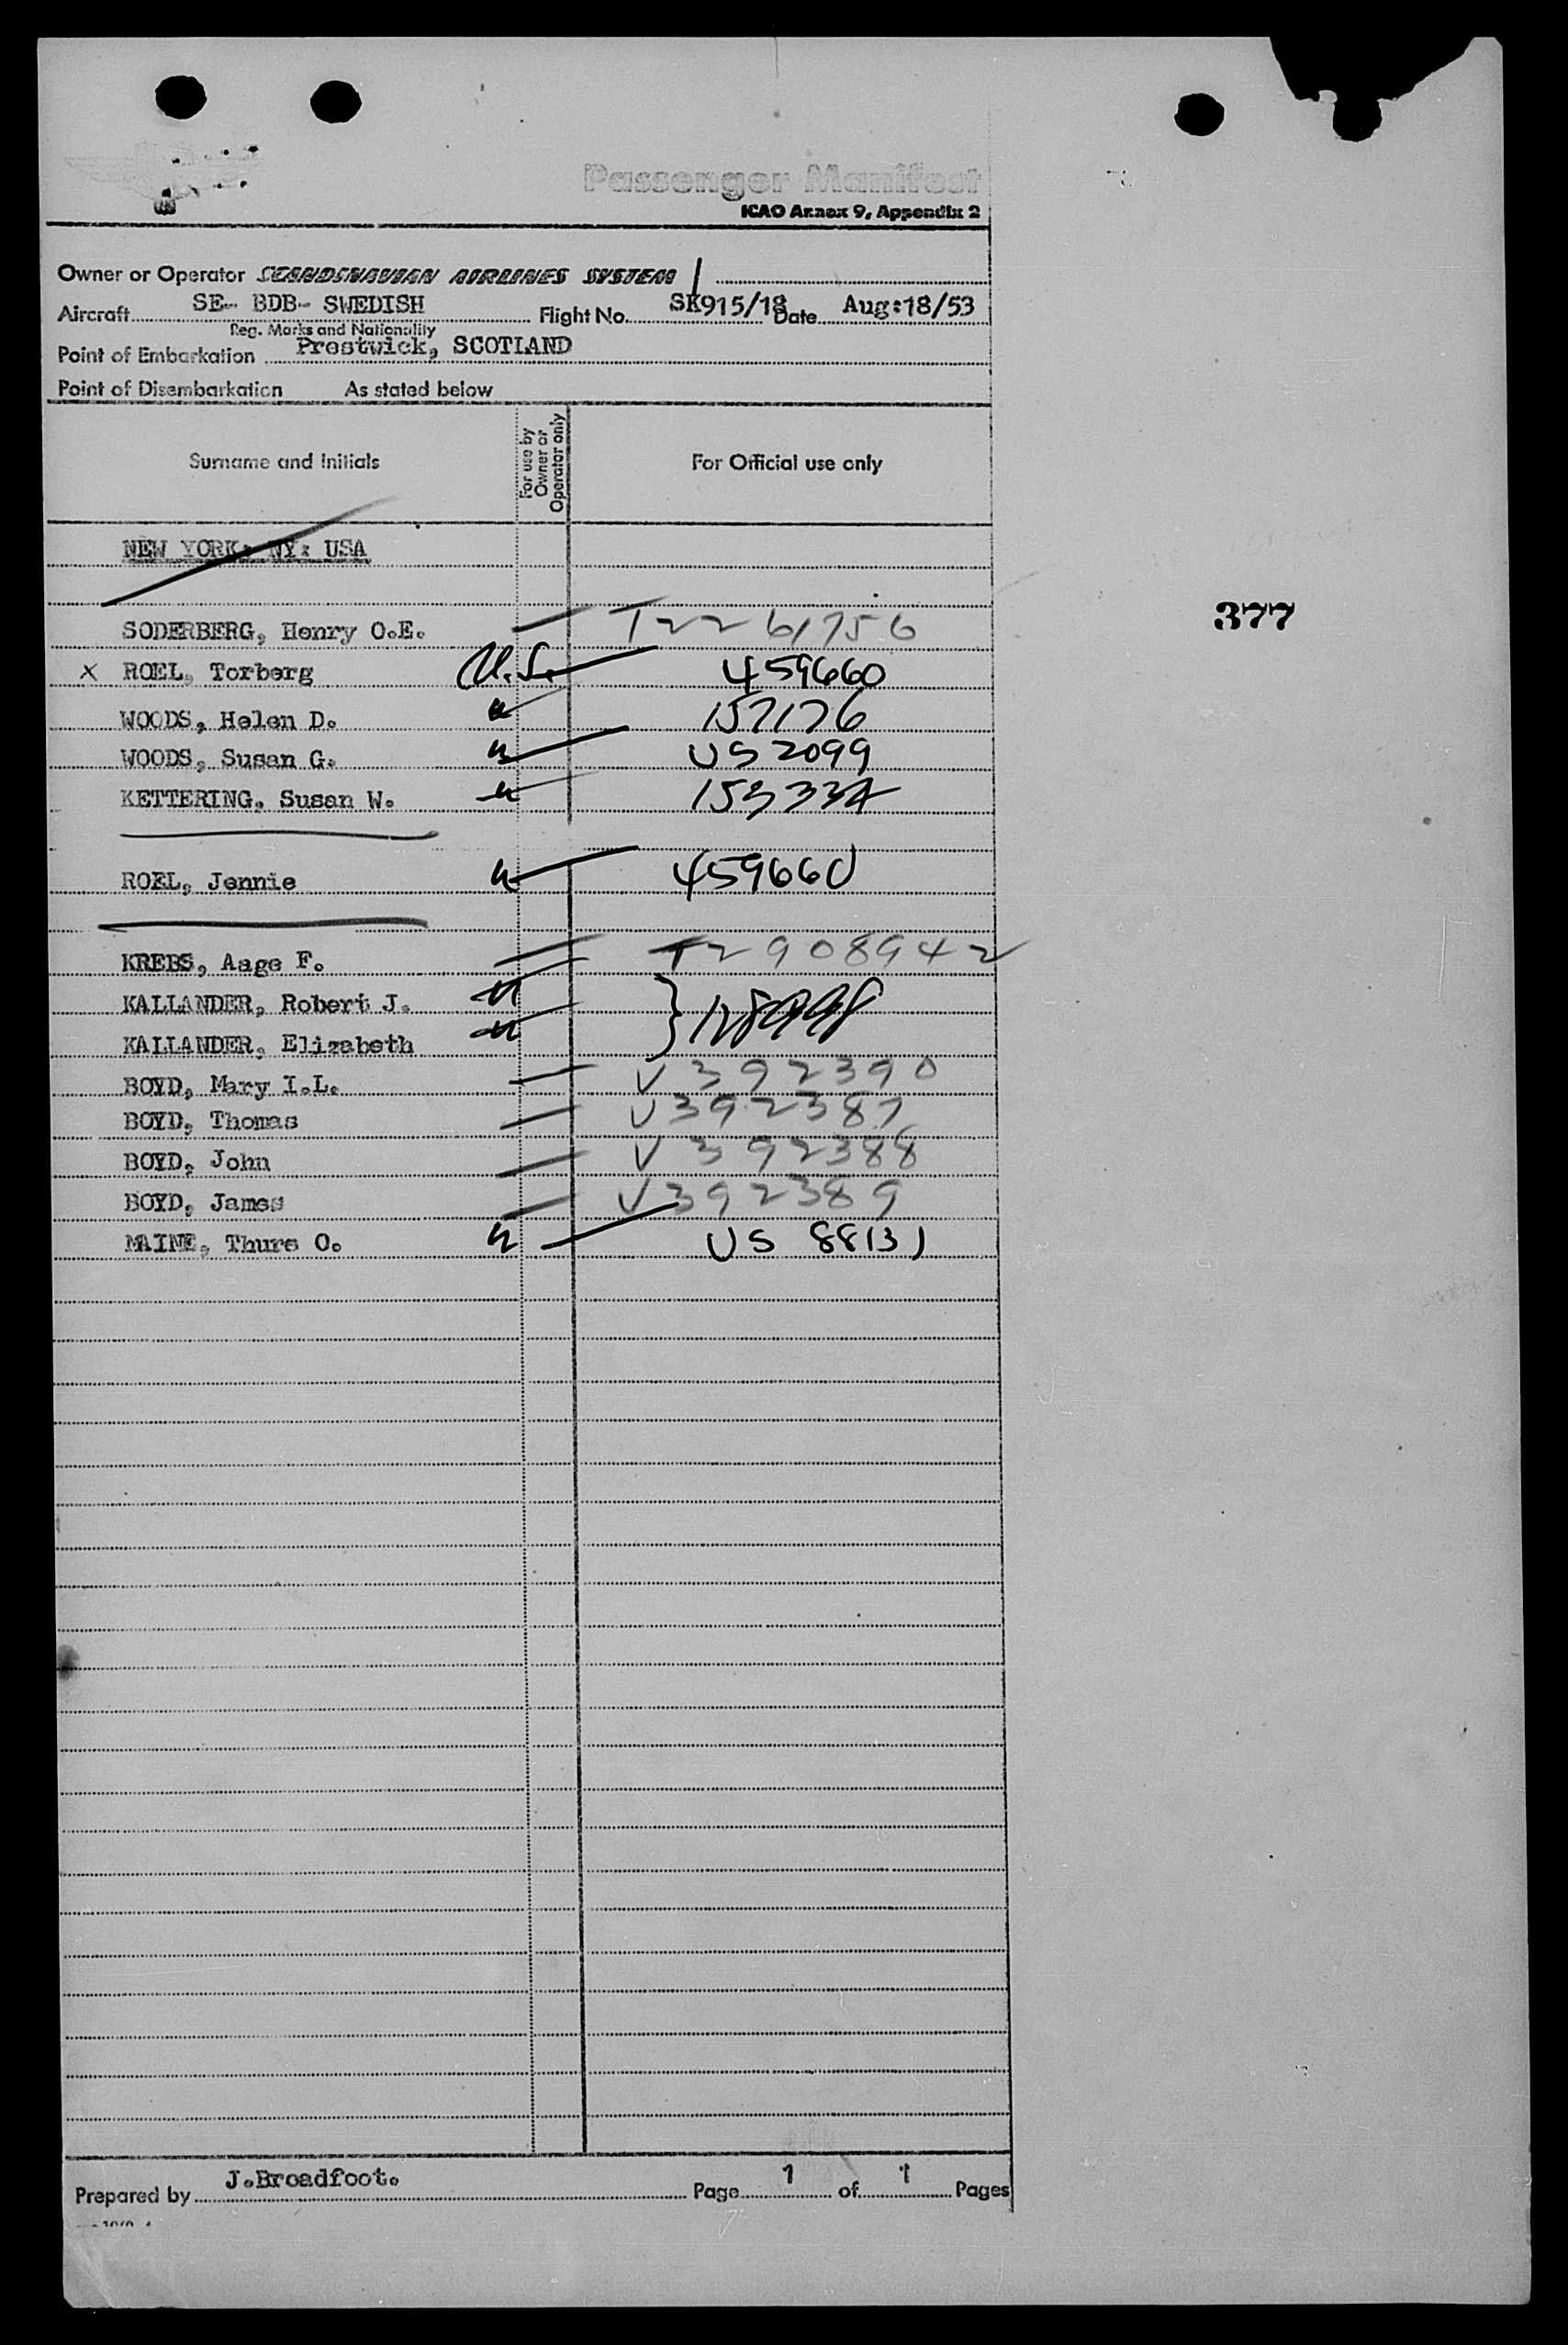 Passenger Manifest
ICAO Annex 9, Appendix 2
Owner or Operator SCANDINAVIAN AIRLINES SYSTEM
Aircraft SE- BDB- SWEDISH Flight No. SK915/18 Date Aug:18/53
Reg. Marks and Nationality
Point of Embarkation Prestwick, SCOTLAND
Point of Disembarkation As stated below
Surname and Initials For use by Owner or Operator only For Official use only
NEW YORK: NY: USA
377
SODERBERG, Henry O.E. T2261756
x ROEL, Torberg U.S. 459660
WOODS, Helen D. " 157176
WOODS, Susan G. " US 2099
KETTERING, Susan W. " 153334
ROEL, Jennie " 459660
KREBS, Aage F. T2908942
KALLANDER, Robert J. "
KALLANDER, Elizabeth "
BOYD, Mary I.L. V392390
BOYD, Thomas V392387
BOYD, John V392388
BOYD, James V392389
MAINE, Thure O. " US 88131
Prepared by J.Broadfoot. Page 1 of 1 Pages